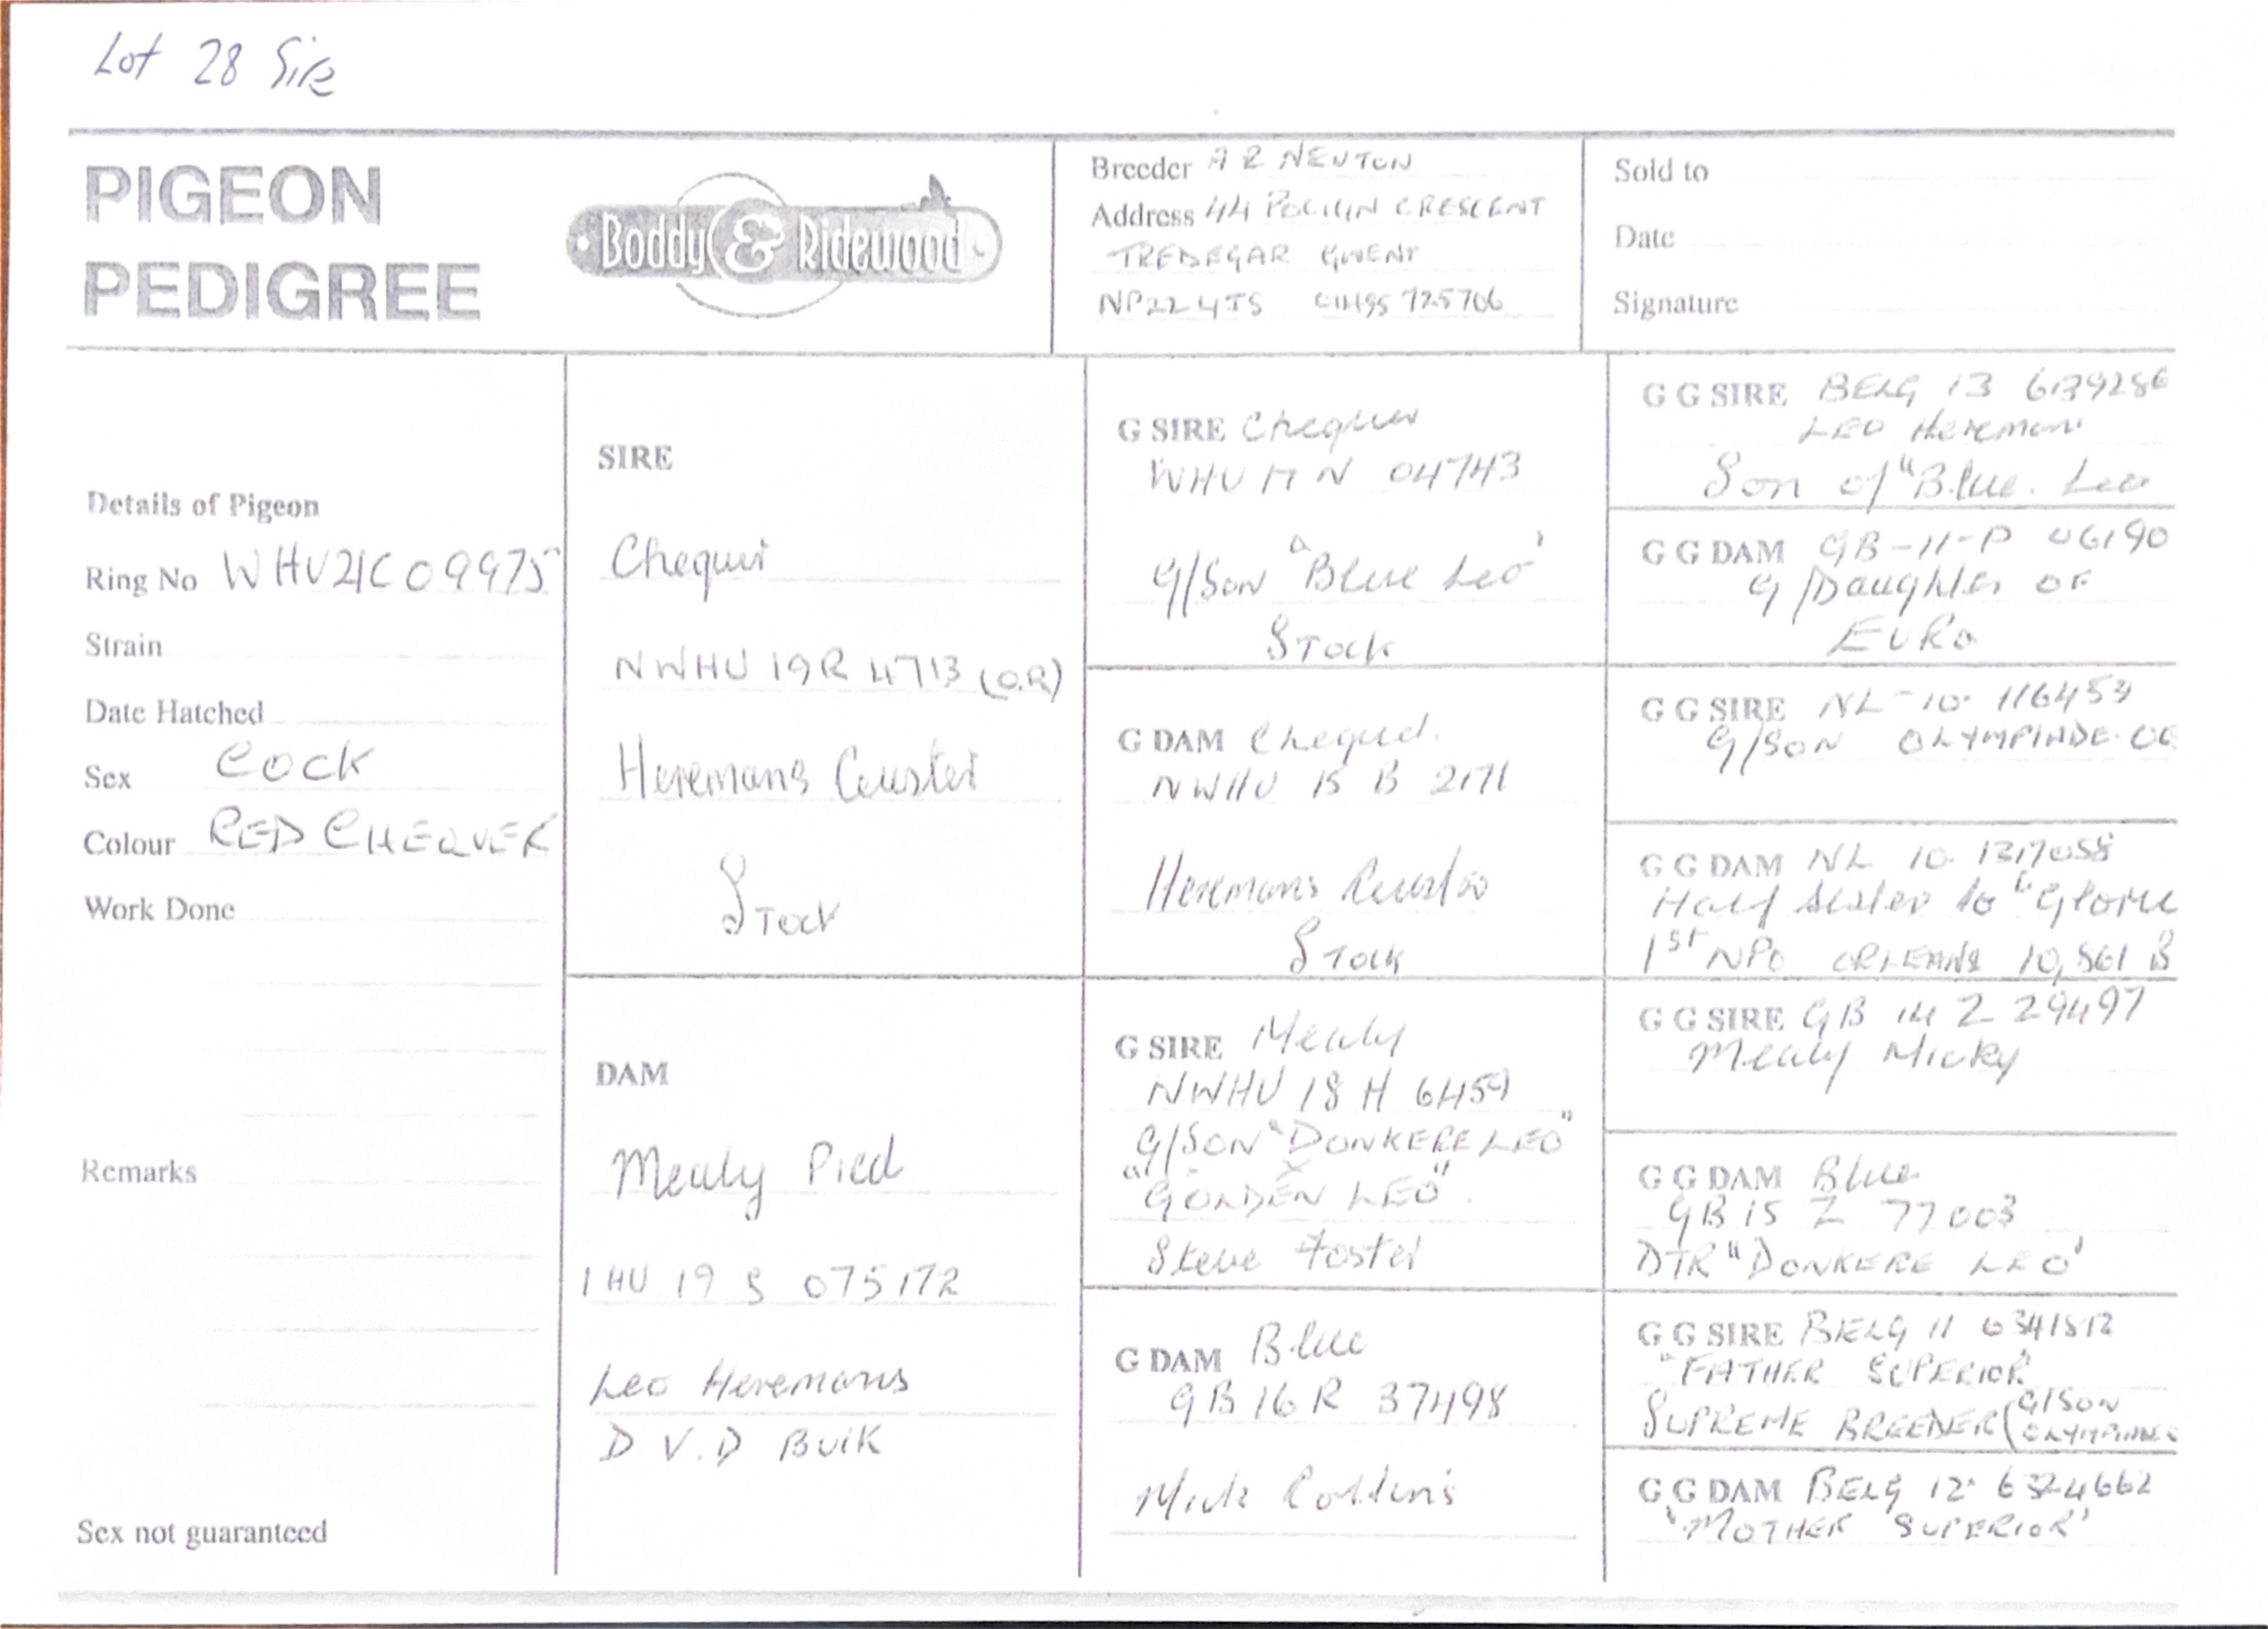 Lot 28 Sire
PIGEON
PEDIGREE
Boddy & Ridewood
Breeder A R NEWTON
Address 44 CRESCENT
TREDEGAR GWENT
NP22 4TS 725706
Sold to
Date
Signature
Details of Pigeon
Ring No WHU21C09975
Strain
Date Hatched
Sex COCK
Colour RED CHEQUER
Work Done
Remarks
Sex not guaranteed
SIRE
Chequer
NWHU 19R 4713 (O.R)
Heremans Ceuster
Stock
DAM
Mealy Pied
IHU 19 S 075172
Leo Heremans
D V.D BUIK
G SIRE Chequer
WHU 17 N 04743
G/Son "Blue Leo"
Stock
G DAM Chequer
NWHU 15 B 2171
Heremans Ceuster
Stock
G SIRE Mealy
NWHU 18 H 6459
G/SON "DONKERE LEO"
X
"GOLDEN LEO".
Steve Foster
G DAM Blue
GB 16 R 37498
Mick Collins
G G SIRE BELG 13
LEO Heremans
Son of "Blue Leo
G G DAM GB-11-P 06190
G/Daughter OF
EURO
G G SIRE NL-10- 116453
G/SON
G G DAM NL 10 1317058
Half Sister to "Glorie
1ST NPO ORLEANS 10,561 B
G G SIRE GB 14 Z 29497
Mealy Micky
G G DAM Blue
GB 15 Z 77003
DTR "DONKERE LEO"
G G SIRE BELG 11 6341812
"FATHER SUPERIOR"
SUPREME BREEDER (G/SON
G G DAM BELG 12 6324662
"MOTHER SUPERIOR"